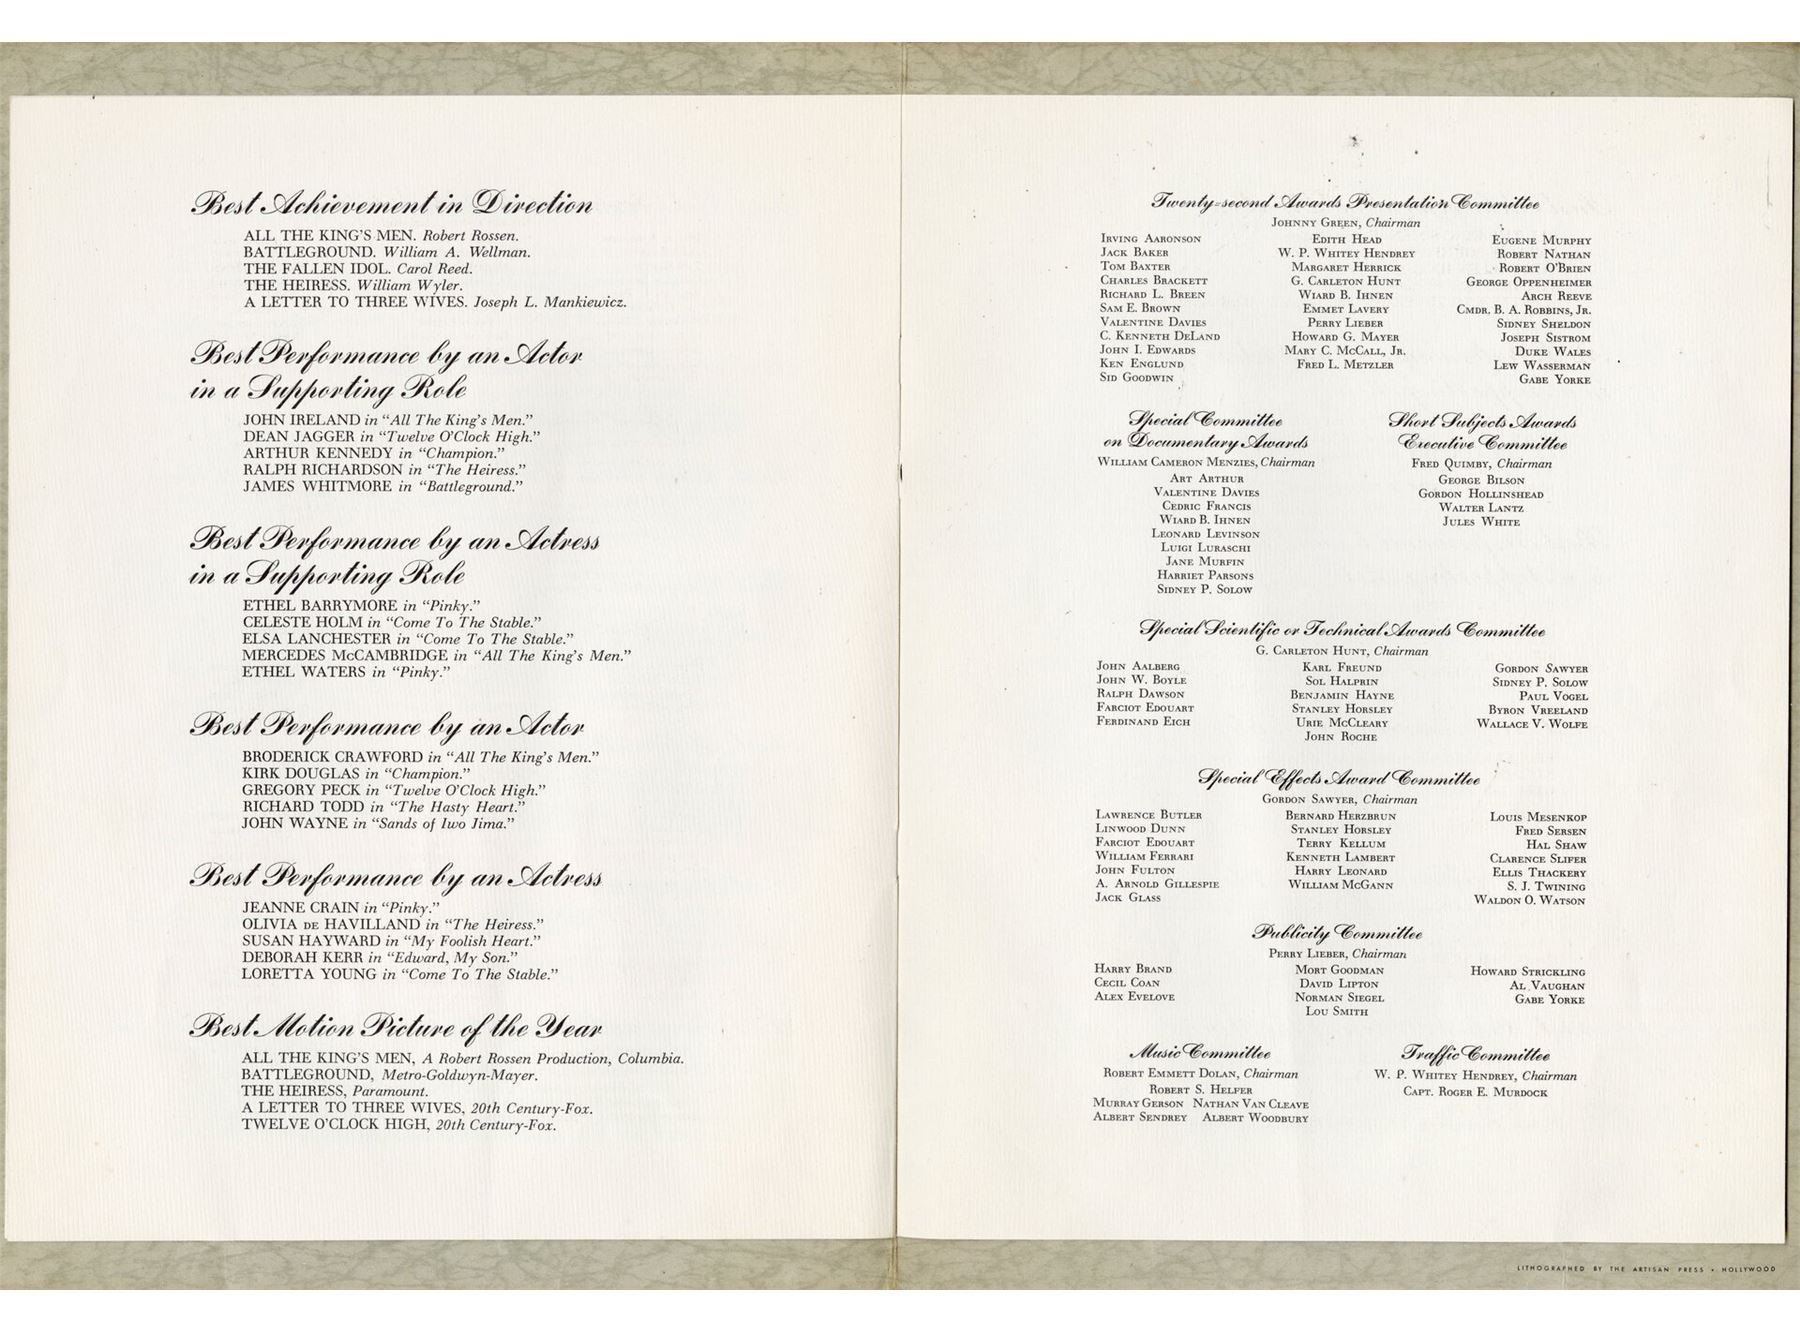 Best Achievement in Direction
ALL THE KING'S MEN. Robert Rossen.
BATTLEGROUND. William A. Wellman.
THE FALLEN IDOL. Carol Reed.
THE HEIRESS. William Wyler.
A LETTER TO THREE WIVES. Joseph L. Mankiewicz.
Best Performance by an Actor
in a Supporting Role
JOHN IRELAND in “All The King's Men.”
DEAN JAGGER in “Twelve O'Clock High.”
ARTHUR KENNEDY in “Champion.”
RALPH RICHARDSON in “The Heiress.”
JAMES WHITMORE in “Battleground.”
Best Performance by an Actress
in a Supporting Role
ETHEL BARRYMORE in “Pinky.”
CELESTE HOLM in “Come To The Stable.”
ELSA LANCHESTER in “Come To The Stable.”
MERCEDES McCAMBRIDGE in “All The King's Men.”
ETHEL WATERS in “Pinky.”
Best Performance by an Actor
BRODERICK CRAWFORD in “All The King's Men.”
KIRK DOUGLAS in “Champion.”
GREGORY PECK in “Twelve O'Clock High.”
RICHARD TODD in “The Hasty Heart.”
JOHN WAYNE in “Sands of Iwo Jima.”
Best Performance by an Actress
JEANNE CRAIN in “Pinky.”
OLIVIA DE HAVILLAND in “The Heiress.”
SUSAN HAYWARD in “My Foolish Heart.”
DEBORAH KERR in “Edward, My Son.”
LORETTA YOUNG in “Come To The Stable.”
Best Motion Picture of the Year
ALL THE KING'S MEN, A Robert Rossen Production, Columbia.
BATTLEGROUND, Metro-Goldwyn-Mayer.
THE HEIRESS, Paramount.
A LETTER TO THREE WIVES, 20th Century-Fox.
TWELVE O'CLOCK HIGH, 20th Century-Fox.
Twenty-second Awards Presentation Committee
JOHNNY GREEN, Chairman
IRVING AARONSON
JACK BAKER
TOM BAXTER
CHARLES BRACKETT
RICHARD L. BREEN
SAM E. BROWN
VALENTINE DAVIES
C. KENNETH DELAND
JOHN I. EDWARDS
KEN ENGLUND
SID GOODWIN
EDITH HEAD
W. P. WHITEY HENDREY
MARGARET HERRICK
G. CARLETON HUNT
WIARD B. IHNEN
EMMET LAVERY
PERRY LIEBER
HOWARD G. MAYER
MARY C. MCCALL, JR.
FRED L. METZLER
EUGENE MURPHY
ROBERT NATHAN
ROBERT O'BRIEN
GEORGE OPPENHEIMER
ARCH REEVE
CMDR. B. A. ROBBINS, JR.
SIDNEY SHELDON
JOSEPH SISTROM
DUKE WALES
LEW WASSERMAN
GABE YORKE
Special Committee
on Documentary Awards
WILLIAM CAMERON MENZIES, Chairman
ART ARTHUR
VALENTINE DAVIES
CEDRIC FRANCIS
WIARD B. IHNEN
LEONARD LEVINSON
LUIGI LURASCHI
JANE MURFIN
HARRIET PARSONS
SIDNEY P. SOLOW
Short Subjects Awards
Executive Committee
FRED QUIMBY, Chairman
GEORGE BILSON
GORDON HOLLINSHEAD
WALTER LANTZ
JULES WHITE
Special Scientific or Technical Awards Committee
G. CARLETON HUNT, Chairman
JOHN AALBERG
JOHN W. BOYLE
RALPH DAWSON
FARCIOT EDOUART
FERDINAND EICH
KARL FREUND
SOL HALPRIN
BENJAMIN HAYNE
STANLEY HORSLEY
URIE MCCLEARY
JOHN ROCHE
GORDON SAWYER
SIDNEY P. SOLOW
PAUL VOGEL
BYRON VREELAND
WALLACE V. WOLFE
Special Effects Award Committee
GORDON SAWYER, Chairman
LAWRENCE BUTLER
LINWOOD DUNN
FARCIOT EDOUART
WILLIAM FERRARI
JOHN FULTON
A. ARNOLD GILLESPIE
JACK GLASS
BERNARD HERZBRUN
STANLEY HORSLEY
TERRY KELLUM
KENNETH LAMBERT
HARRY LEONARD
WILLIAM MCGANN
LOUIS MESENKOP
FRED SERSEN
HAL SHAW
CLARENCE SLIFER
ELLIS THACKERY
S. J. TWINING
WALDON O. WATSON
Publicity Committee
PERRY LIEBER, Chairman
HARRY BRAND
CECIL COAN
ALEX EVELOVE
MORT GOODMAN
DAVID LIPTON
NORMAN SIEGEL
LOU SMITH
HOWARD STRICKLING
AL VAUGHAN
GABE YORKE
Music Committee
ROBERT EMMETT DOLAN, Chairman
ROBERT S. HELFER
MURRAY GERSON NATHAN VAN CLEAVE
ALBERT SENDREY ALBERT WOODBURY
Traffic Committee
W. P. WHITEY HENDREY, Chairman
CAPT. ROGER E. MURDOCK
LITHOGRAPHED BY THE ARTISAN PRESS • HOLLYWOOD